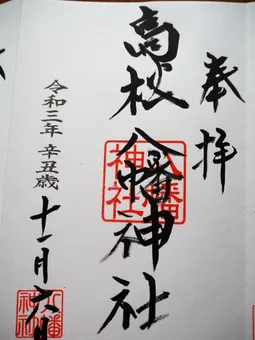 奉拝
高松八幡神社
八幡神社
令和三年辛丑歳
十一月六日